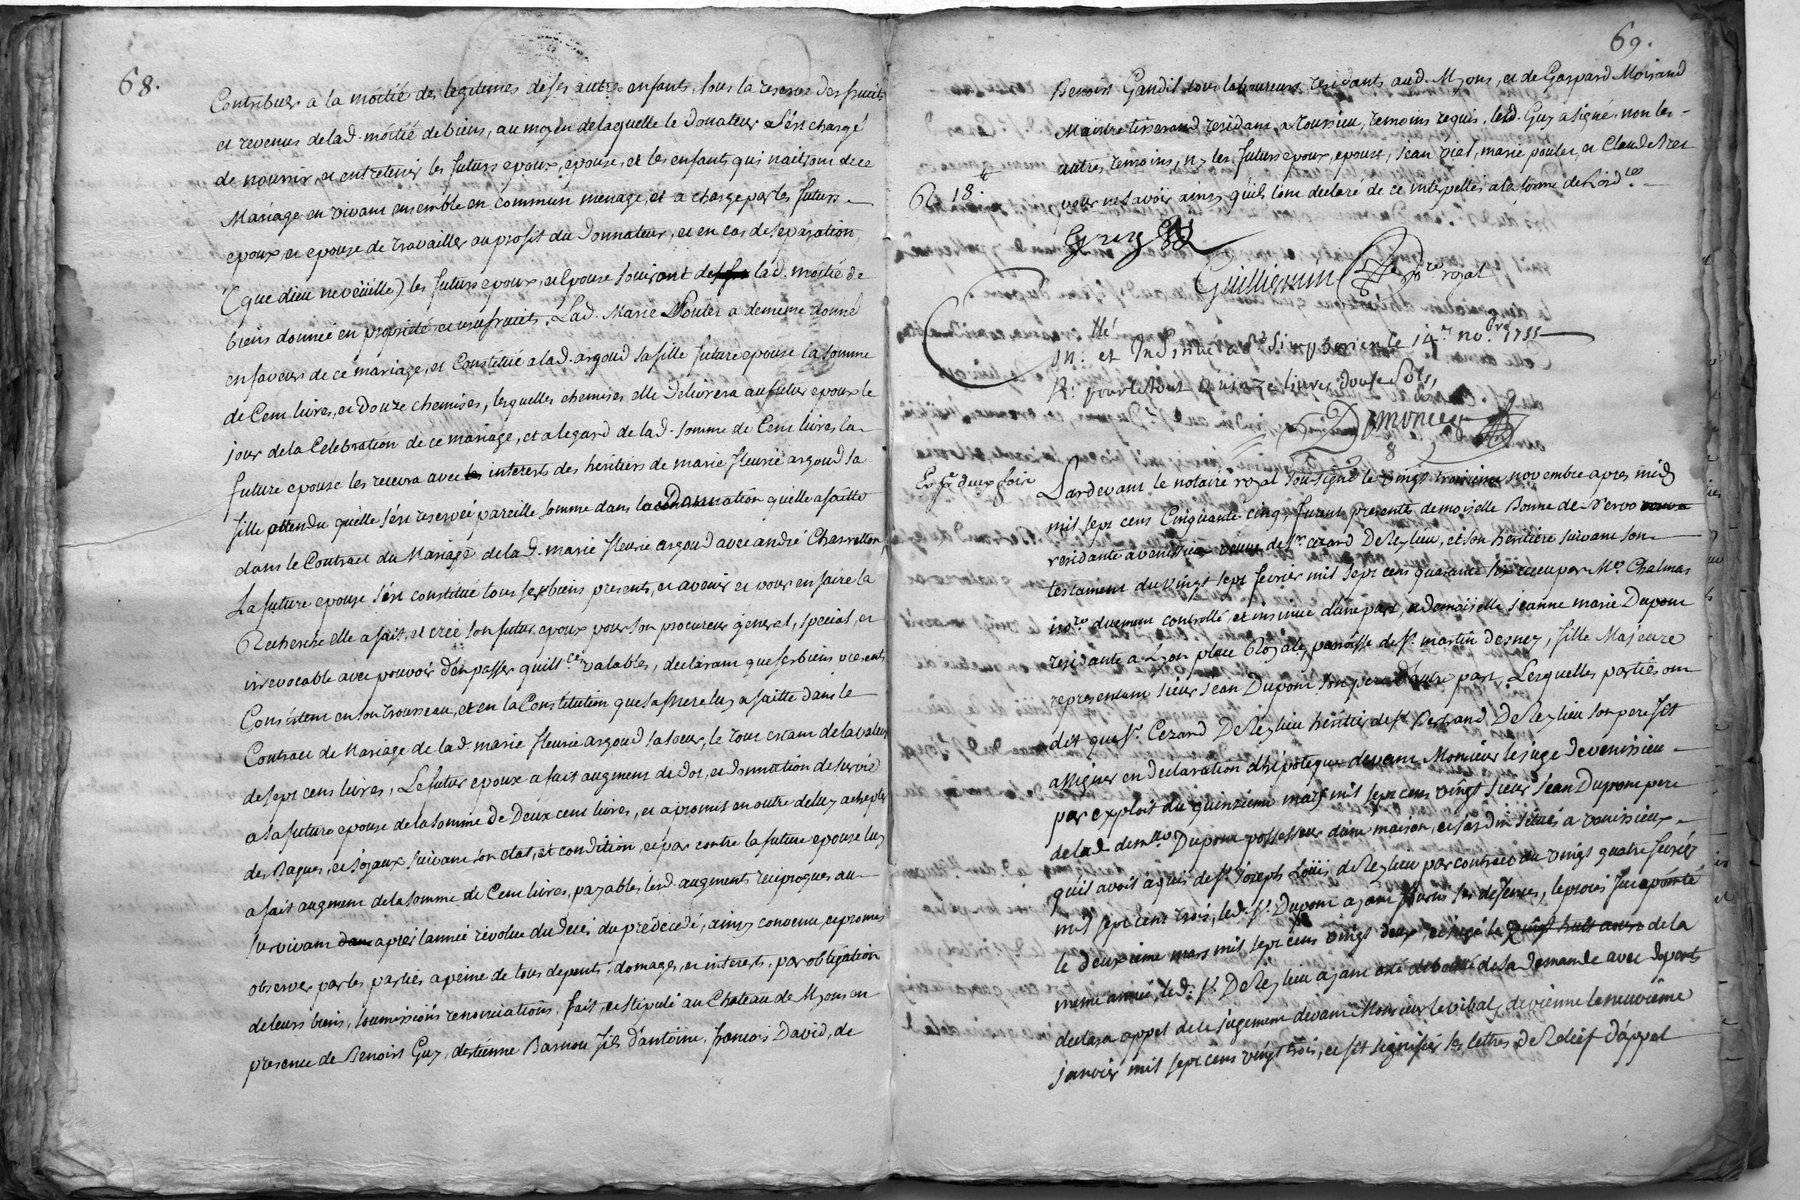 68.
Contribuer a la moitié des legitimes de ses autres enfants, sous la reserve des fruits
et revenus de lad. moitié de biens, au moyen de laquelle le donateur s'est chargé
de nourrir et entretenir les futurs epoux, epouse, et les enfants qui naitront de ce
Mariage en vivant ensemble en commun menage, et a charge par les futurs
epoux et epouse de travailler au profit du Donnateur, et en cas de separation
(que dieu ne veüille) les futurs epoux, et epouse jouiront de lad. moitié de
biens donnée en proprieté et usufruits, Lad. Marie Pouler a de meme donné
en faveur de ce mariage, et Constitué a lad. argoud sa fille future epouse la somme
de Cent livres, et Douze chemises, lesquelles chemises elle delivrera au futur epoux le
jour de la Celebration de ce mariage, et a legard de lad. somme de Cent livres la
future epouse les recevra avec interests des heritiers de marie fleurie argoud sa
fille attendu qu'elle s'est reservée pareille somme dans la Donnation qu'elle a faitte
dans le Contract du Mariage de lad. marie fleurie argoud avec andré Charreton,
La future epouse s'est constitué tous ses biens presents, et avenir et pour en faire la
Recherche elle a fait, et creé son futur epoux pour son procureur general, special, et
irrevocable avec pouvoir d'en passer quitt.ces valables, declarant que ses biens presents
Consistent en son trousseau, et en la Constitution que sa mere luy a faitte dans le
Contract de Mariage de lad. marie fleurie argoud sa soeur, le tout etant de la valeur
de sept cens livres, Le futur epoux a fait augment de dot, et donnation de survie
a sa future epouse de la somme de Deux cens livres, et a promis en outre de luy achepter
des Bagues, et joyaux suivant son etat, et condition, et par contre la future epouse luy
a fait augment de la somme de Cent livres, payables lesd. augments reciproques au
survivant apres l'année revolue du deces du predecedé, ainsy convenu, et promis
observer par les parties a peine de tous depents, domages, et interests, par obligation
de leurs biens, soumissions renonciations, fait, et stipulé au Chateau de Myons en
presence de Benoist Guy, d'estienne Barnou fils d'antoine, francois David, de
69.
Benoist Gandil tous laboureurs residants aud. Myons, et de Gaspard Moirand
Maitre tisserand residant a toussieu, temoins requis, led. Guy a signé, non les
autres temoins, ny les futurs epoux, epouse, jean vial, marie pouler, et Claude
pour ne savoir ainsy qu'ils l'ont declaré de ce interpellés a la forme de l'ord.ce
18.
Guillermin
no.re royal
et Insinué a St Simphorien le 14e no.bre 1755
R. pour le tout Quinze livres douze sols,
Exp.é deux fois
Pardevant le notaire royal soussigné le vingt troisieme novembre apres midy
mil sept cens Cinquante cinq, furent presente demoiselle Bonne de
residante a venissieu veuve de Sr. cezard DeRezlieu, et son heritiere suivant son
testament du vingt sept fevrier mil sept cens quarante six receu par Me. Chalmas
no.re duement controllé, et insinué d'une part, et demoiselle jeanne marie Dupont
residante a Lyon place Royale, paroisse de St. martin Desney, fille Majeure
representant sieur jean Dupont son pere d'autre part, Lesquelles parties ont
dit que Sr. Cezard DeRezlieu heritier de Sr. Bertrand DeRezlieu son pere fit
assigner en declaration d'hipoteque devant Monsieur le juge de venissieu
par exploit du quinzieme mars mil sept cens vingt sieur jean Dupont pere
de lad. dem.lle Dupont possesseur d'une maison, et jardin situés a venissieux
qu'il avoit aquis de Sr. joseph Louis de Rezlieu par contract du vingt quatre fevrier
mil sept cens trois, led. Sr. Dupont ayant fourni ses defenses, le procés fut apointé
le deux ieme mars mil sept cens vingt deux, et jugé le vingt huit aoust de la
meme année, led. Sr. DeRezlieu ayant eté debouté de sa demande avec depents
declara appel de ce jugement devant Monsieur le vibaly de vienne le neuvieme
janvier mil sept cens vingt trois, et fit signifier ses lettres de Relief d'appel